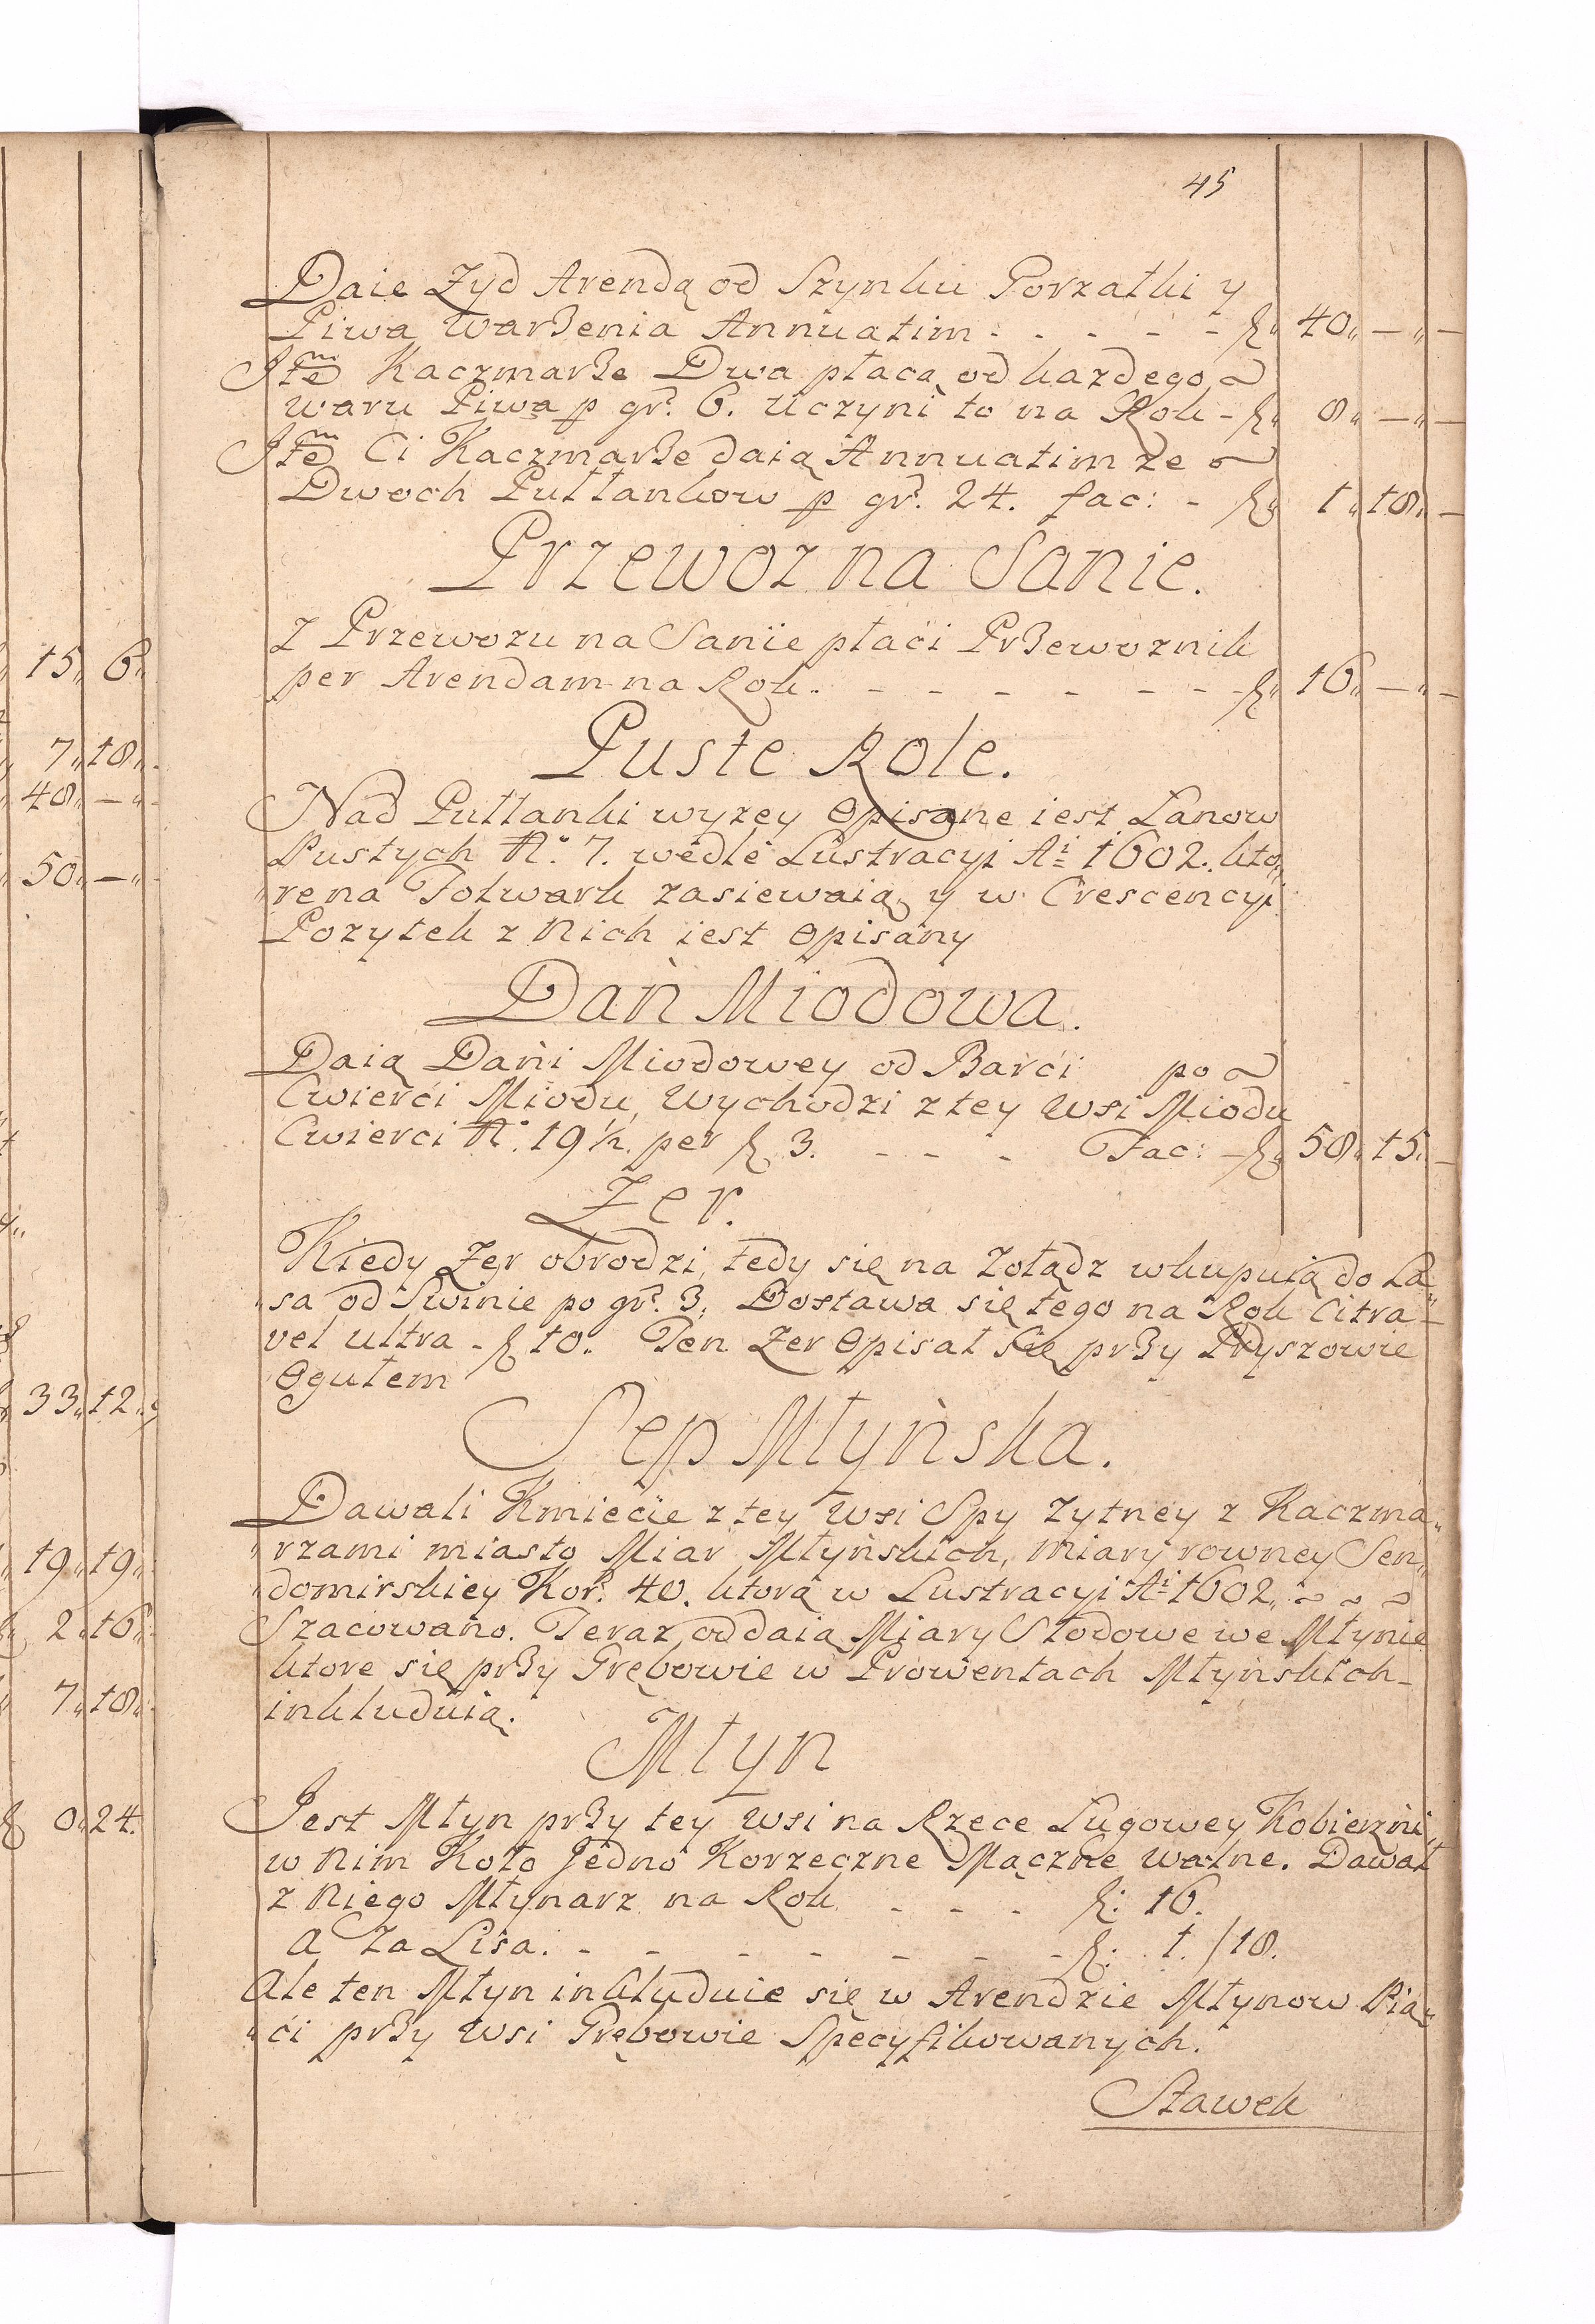 45
Daie Zyd Arendą od Szynku Gorzałki y
Piwa warzenia Annuatim - - - - - fl. 40 „ — „ —
Item Kaczmarze Dwa płacą od kazdego
waru Piwa p gr. 6. uczyni to na Rok - fl. 8 „ — „ —
Item Ci Kaczmarze daią Annuatim ze
Dwoch Pułłankow p gr. 24. fac: - fl. 1 „ 18 „ —
Przewoz na Sanie.
Z Przewozu na Sanie płaci Przewoznik
per Arendam na Rok. - - - - - - - fl. 16 „ — „ —
Puste Role.
Nad Pułłanki wyzey Opisane iest Łanow
Pustych N. 7. wedle Lustracyi Ai 1602. kto„
„re na Folwark zasiewaią y w Crescencyi
Pozytek z Nich iest Opisany
Dań Miodowa.
Daią Dani Miodowey od Barci po
Cwierci Miodu, Wychodzi z tey Wsi Miodu
Cwierci N. 19 ½. per fl 3. - - - Fac: - fl. 58 „ 15 „ —
Zer.
Kiedy Zer obrodzi, tedy się na Zołądz wkupuią do La„
„sa od Swinie po gr. 3. Dostawa się tego na Rok Citra
vel ultra - fl 10. Ten Zer Opisał się przy Pryszowie
Ogułem
Sep Młyńska.
Dawali Kmiecie z tey Wsi Spy Zytney z Kaczma„
„rzami miasto Miar Młyńskich, miary rowney Sen„
„domirskiey Kor. 40. ktorą w Lustracyi Ai 1602.
Szacowano. Teraz oddaią Miary Słodowe we Młynie
ktore się przy Grębowie w Prowentach Młyńskich
inkluduią.
Młyn
Jest Młyn przy tey Wsi na Rzece Ługowey Kobierzni„
w Nim Koło Jedno Korzeczne Mączne walne. Dawał
z Niego Młynarz na Rok - - - fl: 16.
A Za Lisa. - - - - - - - fl: 1./18.
Ale ten Młyn inkluduie się w Arendzie Młynow Pią„
„ci przy Wsi Grębowie Specyfikowanych.
Stawek
15 „ 6 „
7 „ 18 „
48 „ — „
50 „ — „
33 „ 12 „
19 „ 19 „
2 „ 16 „
7 „ 18 „
fl 0 „ 24.